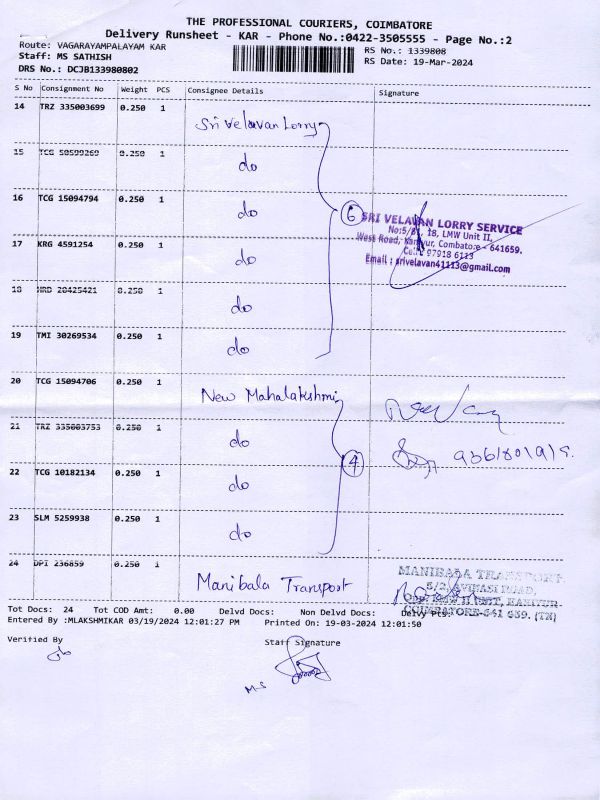 THE PROFESSIONAL COURIERS, COIMBATORE
Delivery Runsheet - KAR - Phone No.:0422-3505555 - Page No.:2
Route: VAGARAYAMPALAYAM KAR
RS No.: 1339808
Staff: MS SATHISH
RS Date: 19-Mar-2024
DRS No.: DCJB133980802
S No Consignment No Weight PCS Consignee Details Signature
14 TRZ 335003699 0.250 1 Sri Velavan Lorry
15 TCG 50599269 0.250 1 do
16 TCG 15094794 0.250 1 do
6
SRI VELAVAN LORRY SERVICE
LMW Unit II,
West Road, Coimbatore - 641659.
Cell: 97918 6113
Email : srivelavan41113@gmail.com
17 KRG 4591254 0.250 1 do
18 HRD 20425421 0.250 1 do
19 TMI 30269534 0.250 1 do
20 TCG 15094706 0.250 1 New Mahalakshmi
21 TRZ 335003753 0.250 1 do
4
22 TCG 10182134 0.250 1 do
23 SLM 5259938 0.250 1 do
24 DPI 236859 0.250 1 Manibala Transport
MANIBALA TRANSPORT
5/2, AVINASI ROAD,
COIMBATORE-641 659. (TN)
Tot Docs: 24 Tot COD Amt: 0.00 Delvd Docs: Non Delvd Docs: Delvy Pts:
Entered By :MLAKSHMIKAR 03/19/2024 12:01:27 PM Printed On: 19-03-2024 12:01:50
Verified By
Staff Signature
M.S